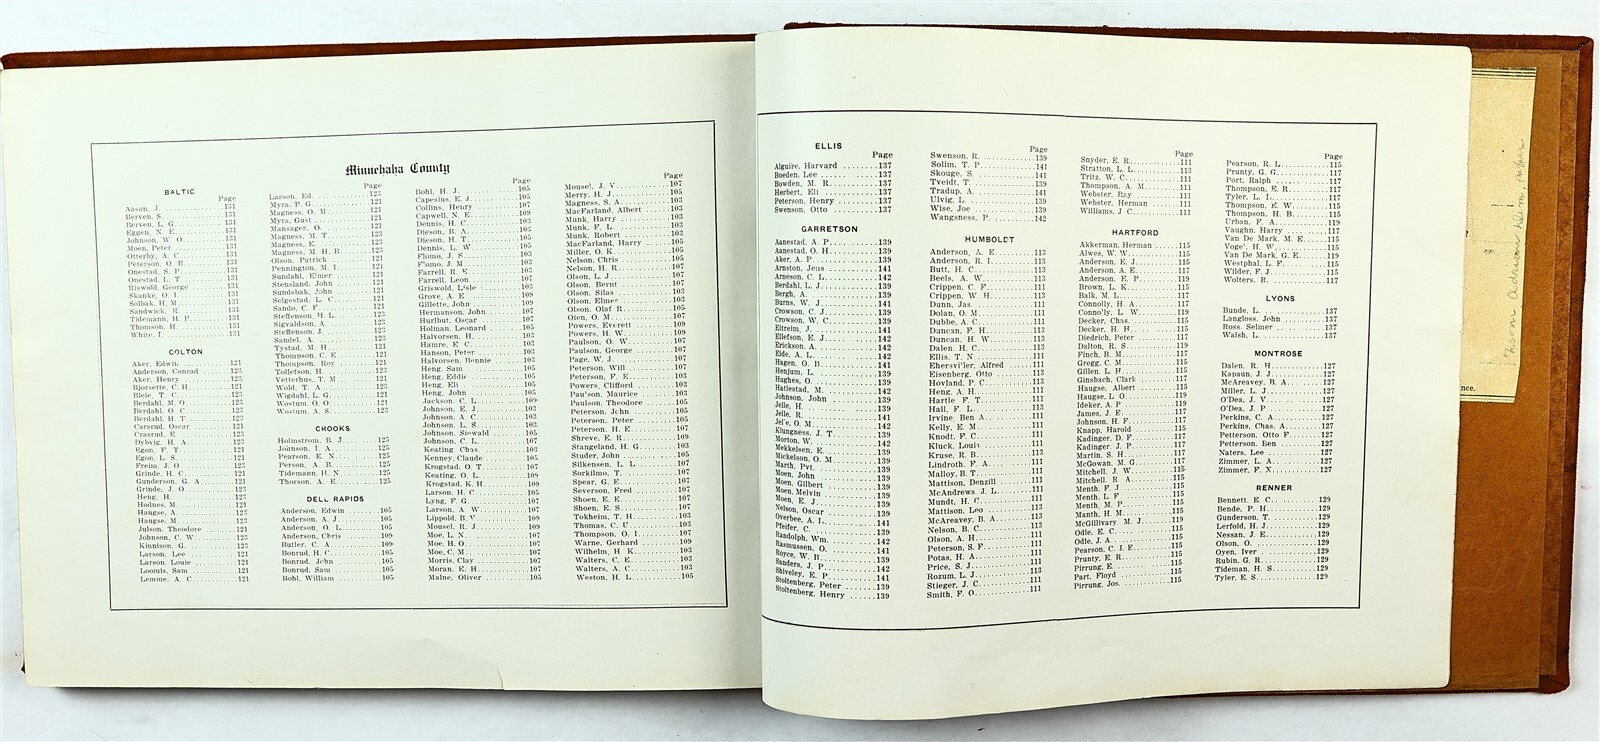 Minnehaha County
BALTIC
Page
Aasan, J. 131
Berven, S. 131
Berven, L. G. 131
Eggen, N. E. 131
Johnson, W. O. 131
Moen, Peter 131
Otterby, A. C. 131
Peterson, O. B. 131
Onestad, S. P. 131
Onestad, L. T. 131
Riswold, George 131
Skanke, O. I. 131
Solbak, H. M. 131
Sandwick, R. 131
Tidemann, H. P. 131
Thomson, H. 131
White, I. 131
COLTON
Aker, Edwin 121
Anderson, Conrad 123
Aker, Henry 123
Bjorsette, C. H. 121
Bleie, T. C. 123
Berdahl, M. O. 123
Berdahl, O. C. 123
Berdahl, H. T. 123
Carsrud, Oscar 121
Crasrud, E. 123
Dybvig, H. A. 123
Egon, F. T. 121
Egon, L. S. 121
Freim, J. O. 123
Grinde, H. C. 121
Gunderson, G. A. 121
Grinde, J. O. 123
Heng, H. 123
Hodnes, M. 121
Haugse, A. 123
Haugse, M. 123
Julson, Theodore 121
Johnson, C. W. 123
Kinnison, G. 123
Larson, Lee 121
Larson, Louie 121
Loomis, Sam 121
Lemme, A. C. 121
Page
Larson, Ed. 123
Myra, P. G. 121
Magness, O. M. 121
Myra, Gust 121
Mansager, O. 121
Magness, M. T. 123
Magness, E. 123
Magness, M. H. B. 123
Olson, Patrick 121
Pennington, M. I. 121
Sundahl, Elmer 121
Stensland, John 121
Sundsbak, John 121
Selgestad, L. C. 121
Sando, C. F. 121
Steffenson, H. L. 123
Sigvaldson, A. 123
Steffenson, J. 123
Sandel, A. 123
Tystad, M. H. 121
Thompson, C. E. 121
Thompson, Roy 121
Tollefson, H. 123
Vetterhus, T. M. 121
Wold, T. A. 123
Wigdahl, L. G. 121
Wostum, O. O. 121
Wostum, A. S. 123
CROOKS
Holmstrom, B. J. 125
Johnson, I. A. 125
Pearson, E. N. 125
Person, A. B. 125
Tidemann, H. N. 125
Thorson, A. E. 125
DELL RAPIDS
Anderson, Edwin 105
Anderson, A. J. 105
Anderson, O. L. 105
Anderson, Chris 109
Butler, C. A. 109
Bonrud, H. C. 105
Bonrud, John 105
Bonrud, Sam 105
Bohl, William 105
Page
Bohl, H. J. 105
Capesius, E. J. 105
Collins, Henry 107
Capwell, N. E. 109
Dennis, H. C. 103
Dieson, B. A. 103
Dieson, H. T. 105
Dennis, L. W. 105
Flomo, J. S. 103
Flomo, J. M. 103
Farrell, R. E. 103
Farrell, Leon 103
Griswold, Lisle 103
Grove, A. E. 109
Gillette, John 109
Hermanson, John 107
Hurlbut, Oscar 107
Holman, Leonard 105
Halvorsen, H. 103
Hamre, E. C. 103
Hanson, Peter 103
Halvorsen, Bennie 103
Heng, Sam 105
Heng, Eddie 105
Heng, Eli 105
Heng, John 105
Jackson, C. L. 109
Johnson, E. J. 103
Johnson, A. C. 103
Johnson, L. S. 103
Johnson, Siewald 105
Johnson, C. L. 107
Keating, Chas. 103
Kenney, Claude 105
Krogstad, O. T. 107
Keating, O. L. 109
Krogstad, K. H. 109
Larson, H. C. 103
Lyng, F. G. 107
Larson, A. W. 107
Lippold, B. V. 109
Mousel, R. J. 109
Moe, L. N. 107
Moe, H. O. 107
Moe, C. M. 107
Morris, Clay 107
Moran, E. H. 107
Malne, Oliver 105
Page
Mousel, J. V. 107
Merry, H. J. 105
Magness, S. A. 103
MacFarland, Albert 103
Munk, Harry 103
Munk, F. L. 103
Munk, Robert 103
MacFarland, Harry 105
Miller, O. K. 105
Nelson, Chris 105
Nelson, H. R. 107
Olson, L. J. 107
Olson, Bernt 107
Olson, Silas 107
Olson, Elmer 103
Olson, Olaf R. 105
Olen, O. M. 107
Powers, Everett 109
Powers, H. W. 109
Paulson, O. W. 107
Paulson, George 107
Page, W. J. 107
Peterson, Will 107
Peterson, F. E. 103
Powers, Clifford 103
Paulson, Maurice 103
Paulson, Theodore 105
Peterson, John 105
Peterson, Peter 105
Peterson, H. E. 107
Shreve, E. R. 109
Stangeland, H. G. 103
Studer, John 105
Silkensen, L. L. 107
Sorkilmo, T. 107
Spear, G. E. 107
Severson, Fred 107
Shoen, E. E. 107
Shoen, E. S. 107
Tokheim, T. H. 103
Thomas, C. U. 103
Thompson, O. I. 107
Warne, Gerhard 109
Wilhelm, H. K. 103
Walters, C. E. 103
Walters, A. C. 103
Weston, H. L. 105
ELLIS
Page
Alguire, Harvard 137
Boeden, Lee 137
Bowden, M. R. 137
Herbert, Eli 137
Peterson, Henry 137
Swenson, Otto 137
GARRETSON
Aanestad, A. P. 139
Aanestad, O. H. 139
Aker, A. P. 139
Arnston, Jens 141
Arneson, C. L. 142
Berdahl, L. J. 139
Bergh, A. 139
Burns, W. J. 141
Crowson, C. J. 139
Crowson, W. C. 139
Eitreim, J. 141
Ellefson, E. J. 142
Erickson, A. 142
Elde, A. L. 142
Hagen, O. B. 142
Henjum, L. 139
Hughes, O. 139
Hatlestad, M. 142
Johnson, John 139
Jelle, H. 139
Jelle, R. 141
Jel'e, O. M. 142
Klungness, J. T. 139
Morton, W. 142
Mekkelsen, E. 142
Mickelson, O. M. 139
Marth, Pvt. 139
Moen, John 139
Moen, Gilbert 139
Moen, Melvin 139
Moen, E. J. 139
Nelson, Oscar 139
Overbee, A. I. 141
Pfeifer, C. 139
Randolph, Wm. 142
Rasmussen, O. 141
Royce, W. B. 141
Sanders, J. P. 142
Shiveley, E. P. 141
Stoltenberg, Peter 139
Stoltenberg, Henry 139
Page
Swenson, R. 139
Solim, T. P. 141
Skouge, S. 141
Tveidt, T. 139
Tradup, A. 141
Ulvig, L. 139
Wise, Joe 139
Wangsness, P. 142
HUMBOLDT
Anderson, A. E. 113
Anderson, R. I. 113
Butt, H. C. 113
Beels, A. W. 113
Crippen, C. F. 111
Crippen, W. H. 113
Dunn, Jas. 111
Dolan, O. M. 111
Dubbe, A. C. 111
Duncan, F. H. 113
Duncan, H. W. 113
Dalen, H. C. 113
Ellis, T. N. 111
Ehersvi'ler, Alfred 111
Eisenberg, Otto 113
Hovland, P. C. 113
Heng, A. H. 111
Hartle, F. T. 111
Hall, F. L. 113
Irvine, Ben A. 111
Kelly, E. M. 111
Knodt, F. C. 111
Kluck, Louis 111
Kruse, R. B. 113
Lindroth, F. A. 111
Malloy, B. T. 111
Mattison, Denzill 111
McAndrews, J. L. 111
Mundt, H. C. 113
Mattison, Leo 113
McAreavey, B. A. 113
Nelson, B. C. 113
Olson, A. H. 111
Peterson, S. F. 111
Potas, H. A. 111
Price, S. J. 111
Rozum, L. J. 113
Stieger, J. C. 111
Smith, F. O. 111
Page
Snyder, E. R. 111
Stratton, L. L. 113
Tritz, W. C. 111
Thompson, A. M. 111
Webster, Ray 111
Webster, Herman 111
Williams, J. C. 111
HARTFORD
Akkerman, Herman 115
Alwes, W. W. 115
Anderson, E. J. 115
Anderson, A. E. 117
Anderson, E. P. 119
Brown, L. K. 115
Balk, M. L. 117
Connolly, H. A. 117
Conno'ly, L. W. 119
Decker, Chas. 115
Decker, H. H. 115
Diedrich, Peter 117
Dalton, R. S. 119
Finch, B. M. 117
Gregg, C. M. 115
Gillen, L. H. 115
Ginsbach, Clark 117
Haugse, Albert 115
Haugse, L. O. 119
Ideker, A. P. 119
James, J. E. 117
Johnson, H. F. 117
Knapp, Harold 115
Kadinger, D. F. 117
Kadinger, J. P. 117
Martin, S. H. 117
McGowan, M. G. 117
Mitchell, J. W. 115
Mitchell, R. A. 115
Menth, F. J. 115
Menth, L. F. 115
Menth, M. P. 115
Manth, H. M. 115
McGillivary, M. J. 119
Odle, E. C. 115
Odle, J. A. 115
Pearson, C. J. E. 115
Prunty, E. R. 115
Pirrung, E. 115
Part, Floyd 115
Pirrung, Jos. 115
Page
Pearson, R. L. 115
Prunty, G. G. 117
Port, Ralph 117
Thompson, E. R. 117
Tyler, L. I. 117
Thompson, E. W. 115
Thompson, H. B. 115
Urban, F. A. 119
Vaughn, Harry 117
Van De Mark, M. E. 115
Voge', H. W. 115
Van De Mark, G. E. 119
Westphal, L. F. 115
Wilder, F. J. 115
Wolters, R. 117
LYONS
Bunde, L. 137
Langloss, John 137
Ross, Selmer 137
Walsh, L. 137
MONTROSE
Dalen, R. H. 127
Kapaun, J. J. 127
McAreavey, B. A. 127
Miller, L. J. 127
O'Dea, J. V. 127
O'Dea, J. P. 127
Perkins, C. A. 127
Perkins, Chas. A. 127
Petterson, Otto F. 127
Petterson, Ben 127
Naters, Lee 127
Zimmer, L. A. 127
Zimmer, F. N. 127
RENNER
Bennett, E. C. 129
Bende, P. H. 129
Gunderson, T. 129
Lerfold, H. J. 129
Nessan, J. E. 129
Olson, O. 129
Oyen, Iver 129
Rubin, G. R. 129
Tideman, H. S. 129
Tyler, E. S. 129